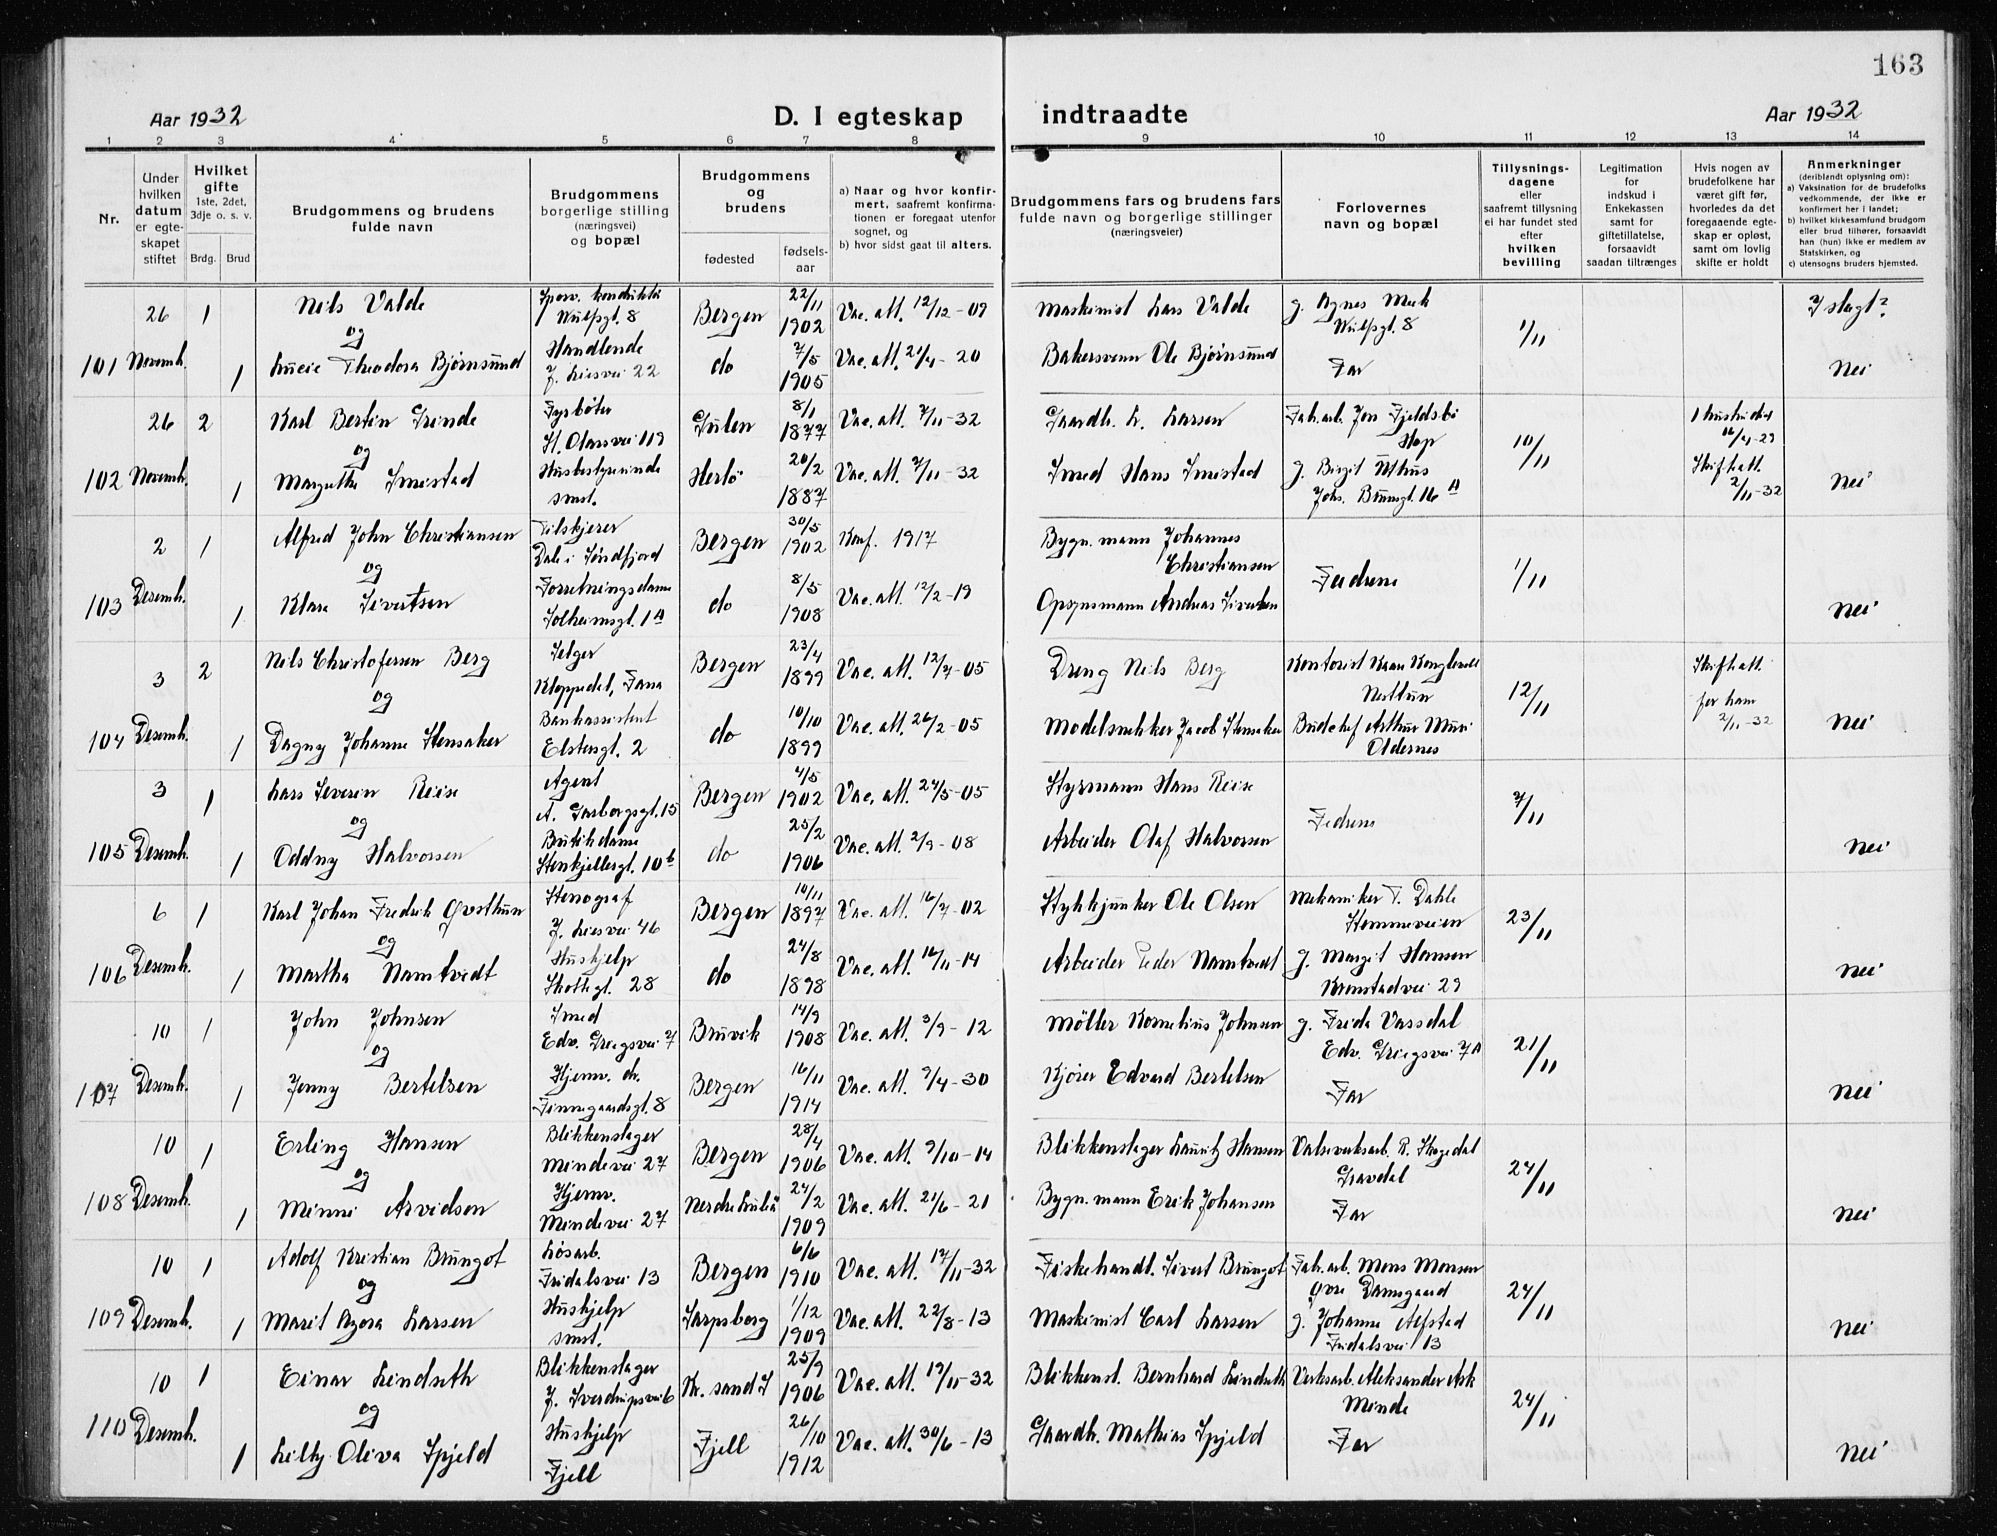 163
Aar 1932
D. I egteskap indtraadte
Aar 1932
1 2 3 4 5 6 7 8 9 10 11 12 13 14
Nr.
Under hvilken datum er egte-skapet stiftet
Hvilket gifte 1ste, 2det, 3dje o. s. v.
Brdg. Brud
Brudgommens og brudens fulde navn
Brudgommens borgerlige stilling (næringsvei) og bopæl
Brudgommens og brudens
fødested
fødsels-aar
a) Naar og hvor konfir-mert, saafremt konfirma-tionen er foregaat utenfor sognet, og
b) hvor sidst gaat til alters.
Brudgommens fars og brudens fars fulde navn og borgerlige stillinger (næringsveier)
Forlovernes navn og bopæl
Tillysnings-dagene eller saafremt tillysning ei har fundet sted efter hvilken bevilling
Legitimation for indskud i Enkekassen samt for giftetillatelse, forsaavidt saadan tiltrænges
Hvis nogen av brudefolkene har været gift før, hvorledes da det foregaaende egte-skap er opløst, samt om lovlig skifte er holdt
Anmerkninger (deriblandt oplysning om):
a) Vaksination for de brudefolks vedkommende, der ikke er konfirmert her i landet;
b) hvilket kirkesamfund brudgom eller brud tilhører, forsaavidt han (hun) ikke er medlem av Statskirken, og
c) utensogns bruders hjemsted.
101 26 Novemb. 1
Nils Valde
Wulfsgt. 8
Bergen 22/11 1902
Vac. att. 12/12-09
Maskinist Lars Valde
g. Agnes Munk
Wulfsgt. 8
1/11
I slegt?
og
1 Lucie Theodora Bjørnsund
Handlende
J. Liesvei 22
do 7/5 1905
Vac. att. 21/4-20
Bakersvenn Ole Bjørnsund
Far
Nei
102 26 Novemb. 2
Karl Bertin Grinde
Fyrbøter
St. Olavsvei 119
Gulen 8/1 1877
Vac. att. 7/11-32
Gaardbr. L. Larsen
Fab.arb. Jon Fjeldsbø
Hop
10/11
16/4-29
og
1 Margrethe Smestad
Husbestyrerinde
smst.
Herlø 20/2 1887
Vac. att. 7/11-32
Smed Hans Smestad
g. Birgit Uthus
Johs. Brunsgt. 16 A
Skifteatt.
2/11-32
Nei
103 2 Desemb. 1
Alfred John Christiansen
Dale i Søndfjord
Bergen 30/5 1902
Konf. 1917
Bygn.mann Johannes
Christiansen
Fedrene
1/11
og
1 Klara Sivertsen
Forretningsdame
Solheimsgt. 1 A
do 8/5 1908
Vac. att. 12/2-19
Opsynsmann Andreas Sivertsen
Nei
104 3 Desemb. 2
Nils Christofersen Berg
Selger
Kloppedal, Fana
Bergen 23/4 1899
Vac. att. 12/7-05
Dreng Nils Berg
Kontorist
Nesttun
12/11
Skifteatt.
for ham
2/11-32
og
1 Dagny Johanne Stensaker
Bankassistent
Elstersgt. 2
do 10/10 1899
Vac. att. 26/2-05
Modelsnekker Jacob Stensaker
Arthur
Nei
105 3 Desemb. 1
Lars Severin Reise
Agent
A. Garborgsgt. 15
Bergen 4/5 1902
Vac. att. 24/5-05
Styrmann Hans Reise
Fedrene
7/11
og
1 Oddny Halvorsen
Butikdame
Stenkjellergt. 10 b
do 25/2 1906
Vac. att. 2/9-08
Arbeider Olaf Halvorsen
Nei
106 6 Desemb. 1
Karl Johan Fredrik Øvsthun
Stenograf
J. Liesvei 46
Bergen 10/11 1897
Vac. att. 16/7-02
Stykkjunker Ole Olsen
Mekaniker T. Dahle
Stemmeveien
23/11
og
1 Martha Namtvedt
Huskjelp
Skottegt. 28
do 24/8 1898
Vac. att. 16/11-14
Arbeider Peder Namtvedt
g. Margit Hansen
Kronstadvei 29
Nei
107 10 Desemb. 1
John Johnsen
Smed
Edv. Griegsvei 7
Bruvik 14/9 1908
Vac. att. 3/9-12
Møller Kornelius Johnsen
g. Frida Vassdal
Edv. Griegsvei 7 A
21/11
og
1 Jenny Bertelsen
Hjemv. dr.
Finnegaardsgt. 8
Bergen 16/11 1914
Vac. att. 9/4-30
Kjører Edvard Bertelsen
Far
Nei
108 10 Desemb. 1
Erling Hansen
Blikkenslager
Mindevei 27
Bergen 28/4 1906
Vac. att. 9/10-14
Blikkenslager Lauritz Hansen
Valseverksarb. R. Skogedal
Gravdal
24/11
og
1 Minni Arvidsen
Hjemv.
Mindevei 27
Nerdre Luleå 24/2 1909
Vac. att. 21/6-21
Bygn.mann Erik Johansen
Far
Nei
109 10 Desemb. 1
Adolf Kristian Brungot
Løsarb.
Fridalsvei 13
Bergen 6/6 1910
Vac. att. 17/11-32
Fiskehandl. Sivert Brungot
Fab.arb. Mons Monsen
Øvre Damsgaard
24/11
og
1 Marit Agora Larsen
Huskjelp
smst.
Sarpsborg 1/12 1909
Vac. att. 22/8-13
Maskinist Carl Larsen
g. Johanne Alfstad
Fridalsvei 13
Nei
110 10 Desemb. 1
Einar Lindseth
Blikkenslager
J. Sverdrupsvei 6
Kr. sand S 25/9 1906
Vac. att. 19/11-32
Blikkensl. Bernhard Lindseth
Verksarb. Aleksander Ask
Minde
24/11
og
1 Lilly Oliva Spjeld
Huskjelp
Fjell
Fjell 26/10 1912
Vac. att. 30/6-13
Gaardbr. Mathias Spjeld
Far
Nei